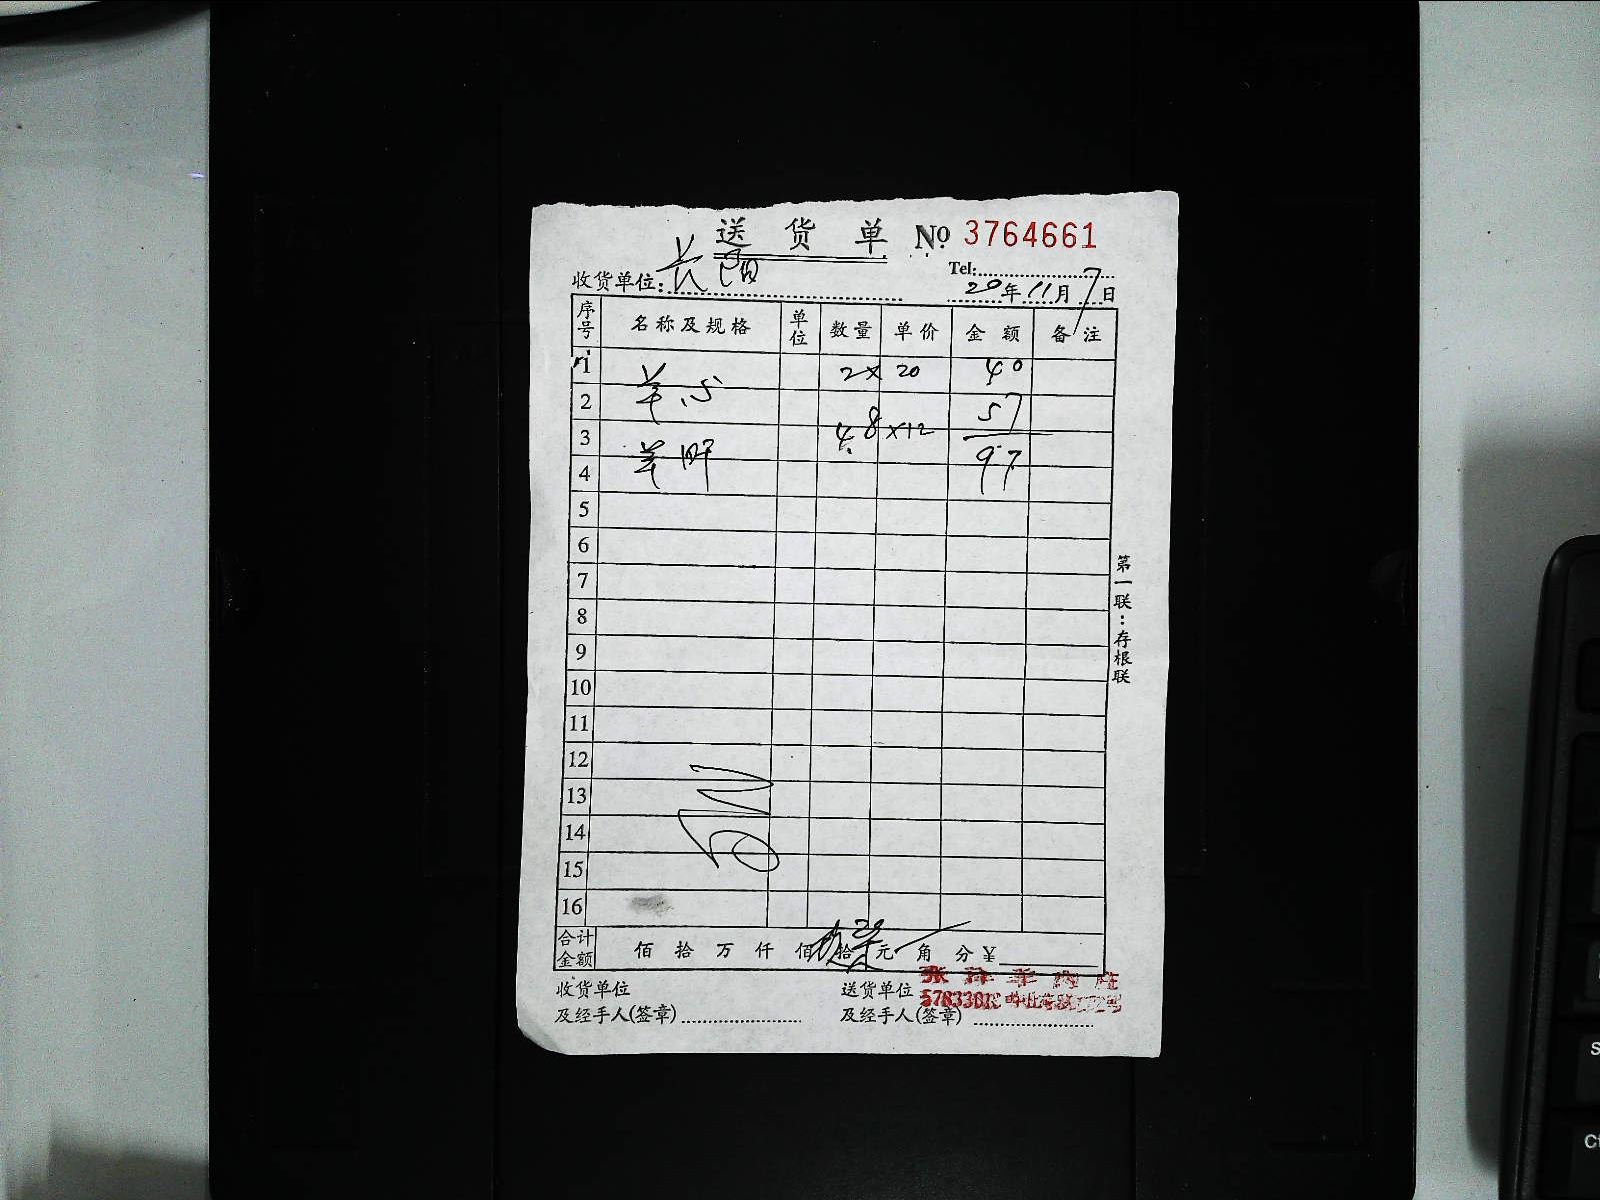 送货单 № 3764661
Tel:
收货单位: 长阳 20年11月7日
序号 名称及规格 单位 数量 单价 金额 备注
1 羊心 2× 20 40
2 57
3 羊肝 4.8 ×12
4 97
5
6
7
8
9
10
11
12
13
14
15
16
合计金额 佰 拾 万 仟 佰 拾 元 角 分 ¥
收货单位 送货单位
及经手人(签章) 及经手人(签章)
第一联:存根联